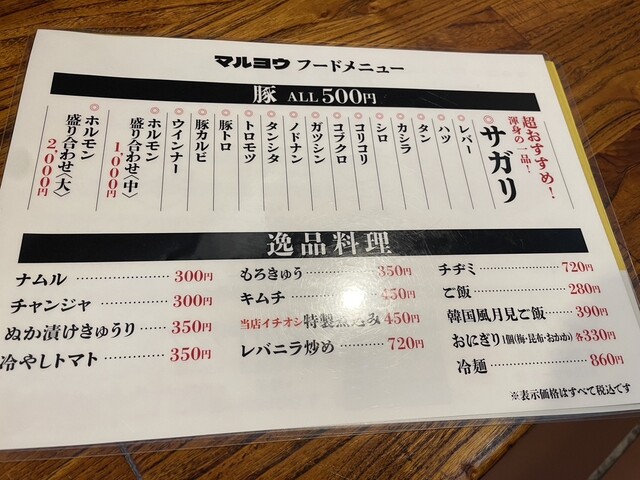 マルヨウ フードメニュー
豚 ALL 500円
超おすすめ!
渾身の一品!
サガリ
レバー
ハツ
タン
カシラ
シロ
コリコリ
コブクロ
ガツシン
ノドナン
タンシタ
トロモツ
豚トロ
豚カルビ
ウインナー
ホルモン
盛り合わせ〈中〉
1,000円
ホルモン
盛り合わせ〈大〉
2,000円
逸品料理
ナムル 300円
チャンジャ 300円
ぬか漬けきゅうり 350円
冷やしトマト 350円
もろきゅう 350円
キムチ 450円
当店イチオシ 特製煮込み 450円
レバニラ炒め 720円
チヂミ 720円
ご飯 280円
韓国風月見ご飯 390円
おにぎり 1個(梅・昆布・おかか) 各330円
冷麺 860円
※表示価格はすべて税込です